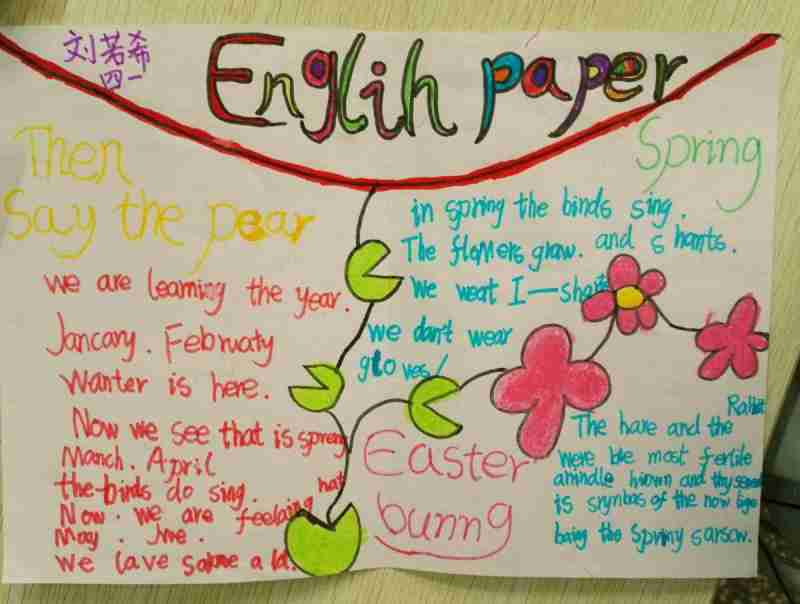 刘若希
四一
Englih paper
Then
Say the pear
we are learning the year.
Jancary. February
Wanter is here.
Now we see that is spreng
March. April
the birds do sing.
Now. we are feelaing hat
May. Jne.
we lave same a lot.
Spring
in spring the binds sing.
The flowers graw. and s hants.
We weat I—shat
we dan't wear
glo ves!
Easter
bunng
Rabbit
The hare and the
were ble most fertile
anindle hiown and thy
is srynbas of the now
baing the Spriny sarsow.